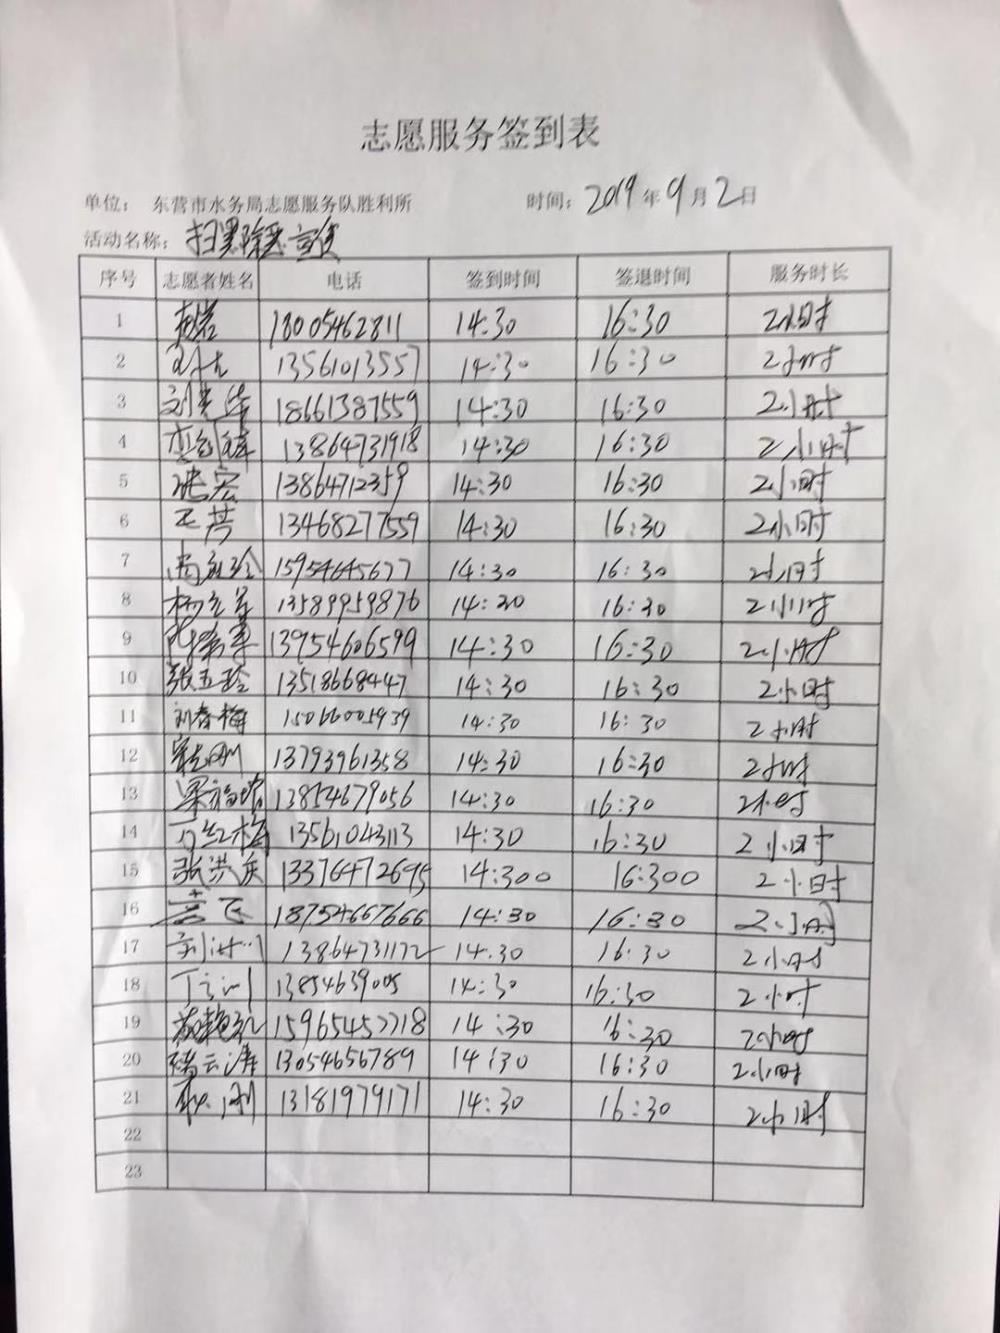 志愿服务签到表
单位： 东营市水务局志愿服务队胜利所 时间：2019年9月2日
活动名称：扫黑除恶宣传
序号 志愿者姓名 电话 签到时间 签退时间 服务时长
1 18005462811 14:30 16:30 2小时
2 13561013557 14:30 16:30 2小时
3 18661387559 14:30 16:30 2小时
4 13864731918 14:30 16:30 2小时
5 张宏 13864712359 14:30 16:30 2小时
6 13468277559 14:30 16:30 2小时
7 15954645677 14:30 16:30 2小时
8 13589959876 14:30 16:30 2小时
9 13954606599 14:30 16:30 2小时
10 张玉玲 13518668447 14:30 16:30 2小时
11 刘春梅 15066005939 14:30 16:30 2小时
12 13793961358 14:30 16:30 2小时
13 13854679056 14:30 16:30 2小时
14 13561043113 14:30 16:30 2小时
15 13376472695 14:300 16:300 2小时
16 18754667666 14:30 16:30 2小时
17 13864731172 14:30 16:30 2小时
18 13854639005 14:30 16:30 2小时
19 14:30 16:30 2小时
20 13054656789 14:30 16:30 2小时
21 13181979171 14:30 16:30 2小时
22
23